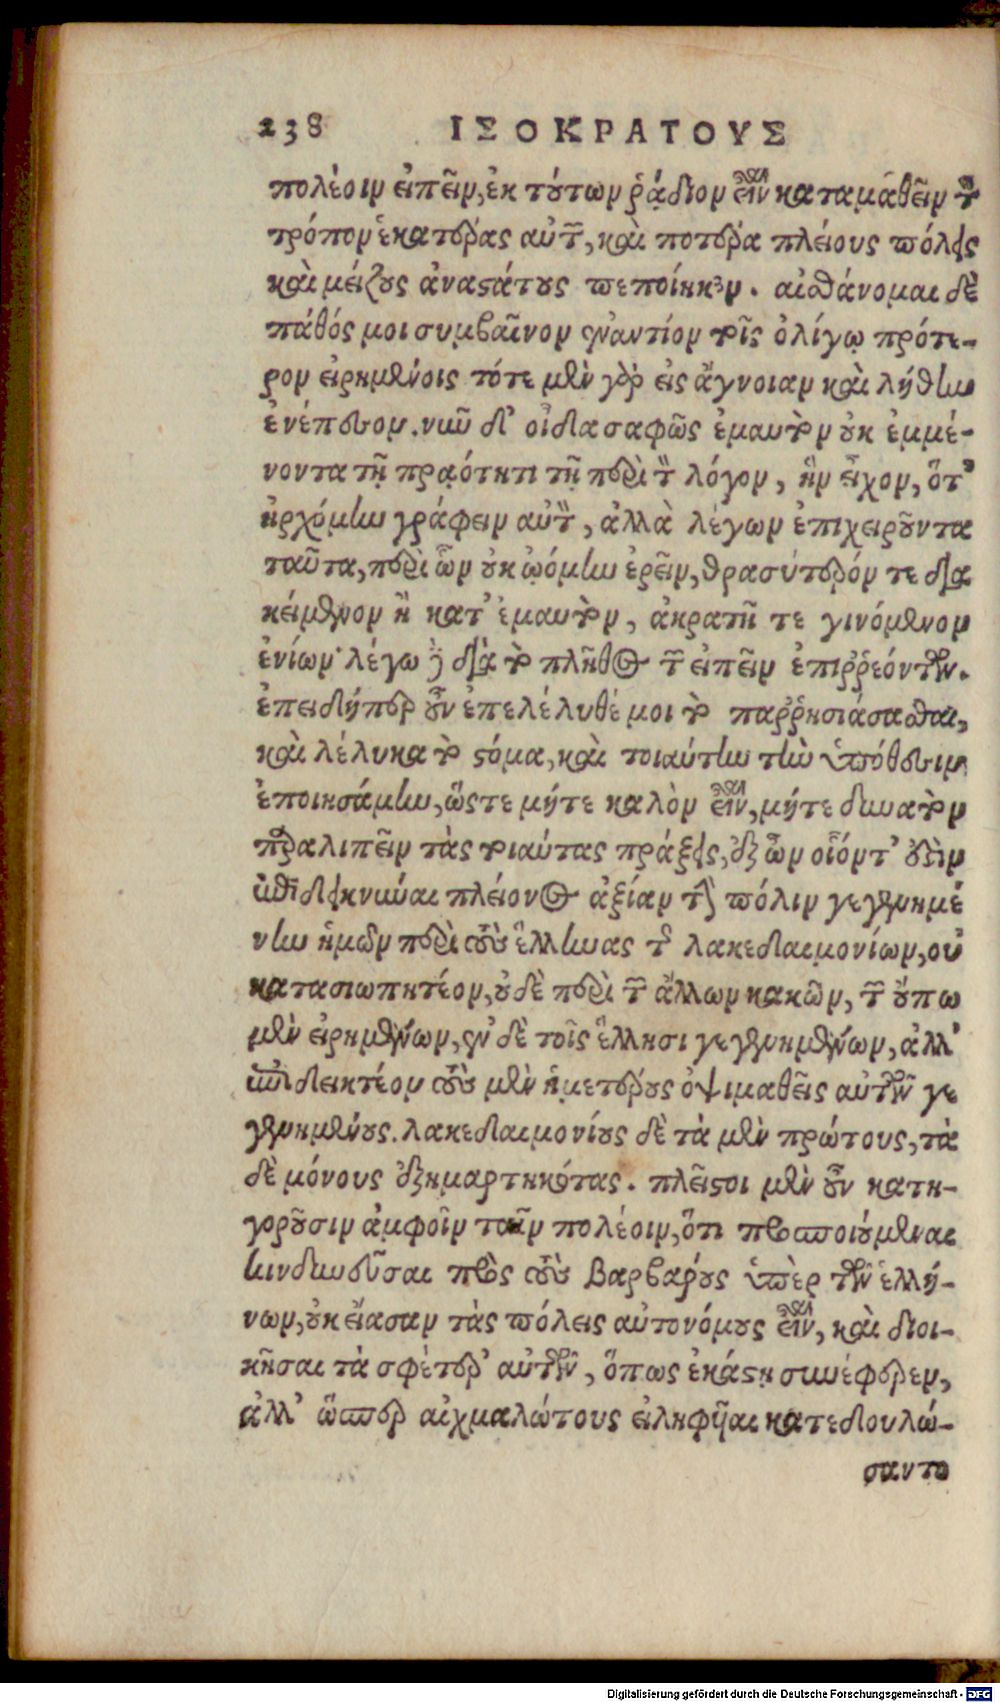 238 ΙΣΟΚΡΑΤΟΥΣ
πολέοιν εἰπεῖν, ἐκ τούτων ῥᾴδιον εἶναι καταμαθεῖν τὸν
τρόπον ἑκατέρας αὐτῶν, καὶ ποτέρα πλείους πόλεις
καὶ μείζους ἀναστάτους πεποίηκεν. αἰσθάνομαι δὲ
πάθός μοι συμβαῖνον ἐναντίον τοῖς ὀλίγῳ πρότε-
ρον εἰρημένοις τότε μὲν γὰρ εἰς ἄγνοιαν καὶ λήθην
ἐνέπεσον. νῦν δ' οἶδα σαφῶς ἐμαυτὸν οὐκ ἐμμέ-
νοντα τῇ πρᾳότητι τῇ περὶ τὸν λόγον, ἣν εἶχον, ὅτ'
ἠρχόμην γράφειν αὐτὸν, ἀλλὰ λέγων ἐπιχειροῦντα
ταῦτα, περὶ ὧν οὐκ ᾠόμην ἐρεῖν, θρασύτερόν τε δια
κείμενον ἢ κατ' ἐμαυτὸν, ἀκρατῆ τε γινόμενον
ἐνίων· λέγω δὲ διὰ τὸ πλῆθος τῶν εἰπεῖν ἐπιῤῥεόντων.
ἐπειδήπερ οὖν ἐπελέλυθέ μοι τὸ παῤῥησιάσασθαι,
καὶ λέλυκα τὸ στόμα, καὶ τοιαύτην τὴν ὑπόθεσιν
ἐποιησάμην, ὥστε μήτε καλὸν εἶναι, μήτε δυνατὸν
παραλιπεῖν τὰς τοιαύτας πράξεις, ἐξ ὧν οἷόντ' ἐστὶν
ἐπιδεικνύναι πλείονος ἀξίαν τὴν πόλιν γεγενημέ
νην ἡμῶν περὶ τοὺς ἕλληνας τῶν λακεδαιμονίων, οὐ
κατασιωπητέον, οὐδὲ περὶ τῶν ἄλλων κακῶν, τῶν οὔπω
μὲν εἰρημένων, ἐν δὲ τοῖς ἕλλησι γεγενημένων, ἀλλ'
ἐπιδεικτέον τοὺς μὲν ἡμετέρους ὀψιμαθεῖς αὐτῶν γε
γενημένους. λακεδαιμονίους δὲ τὰ μὲν πρώτους, τὰ
δὲ μόνους ἐξημαρτηκότας. πλεῖστοι μὲν οὖν κατη-
γοροῦσιν ἀμφοῖν ταῖν πολέοιν, ὅτι προσποιούμεναι
κινδυνεῦσαι πρὸς τοὺς βαρβάρους ὑπὲρ τῶν ἑλλή-
νων, οὐκ εἴασαν τὰς πόλεις αὐτονόμους εἶναι, καὶ διοι-
κῆσαι τὰ σφέτερ' αὐτῶν, ὅπως ἑκάστῃ συνέφερεν,
ἀλλ' ὥσπερ αἰχμαλώτους εἰληφῆαι κατεδουλώ-
σαντο
Digitalisierung gefördert durch die Deutsche Forschungsgemeinschaft - DFG